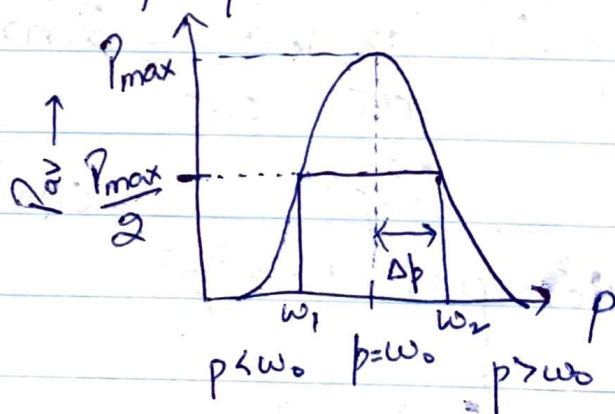 Pmax
Pav → Pmax/2
Δp
ω₁ ω₂ p
p<ω₀ p=ω₀ p>ω₀